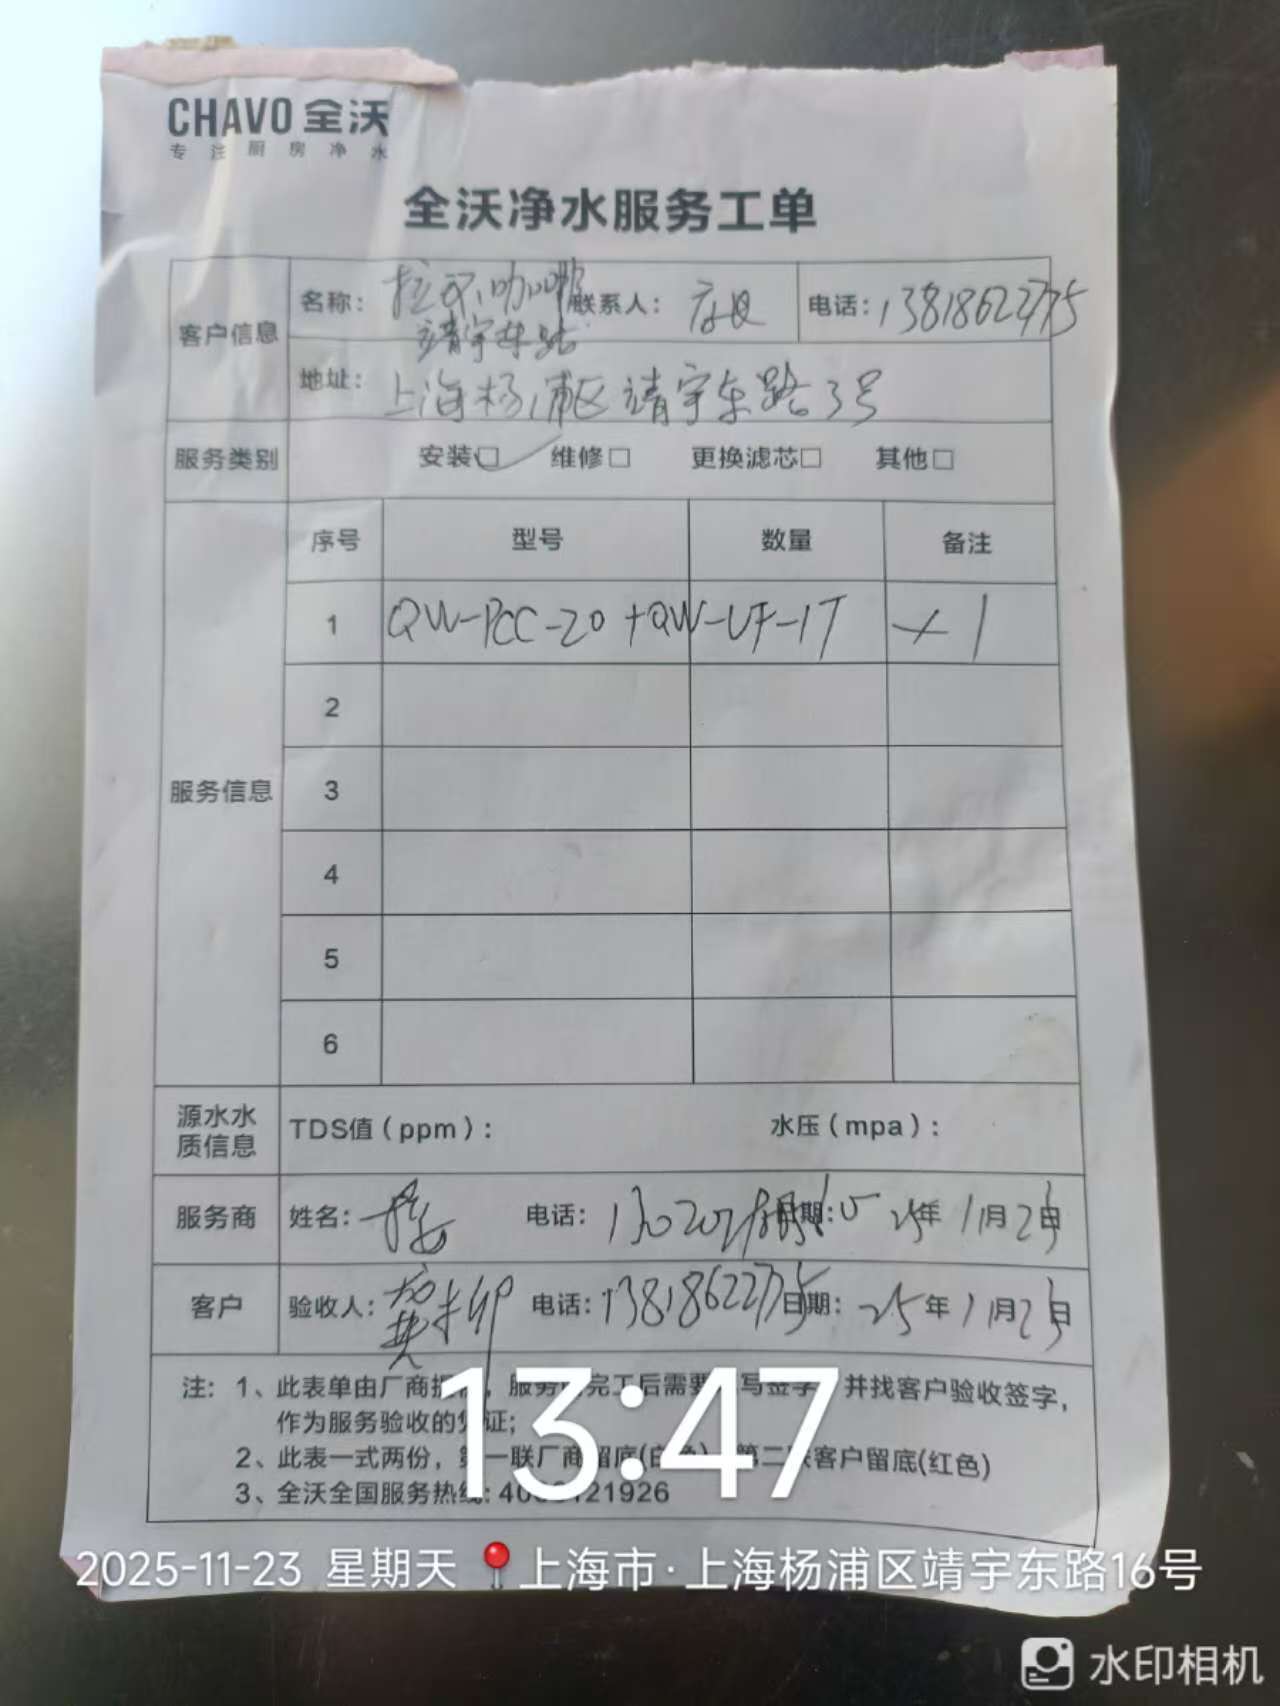 CHAVO 全沃
专注厨房净水
全沃净水服务工单
客户信息 名称: 咖啡 靖宇东路 联系人: 店长 电话: 13818622775
地址: 上海杨浦区靖宇东路3号
服务类别 安装☑ 维修□ 更换滤芯□ 其他□
服务信息 序号 型号 数量 备注
1 QW-PCC-20+QW-UF-1T ×1
2
3
4
5
6
源水水质信息 TDS值(ppm): 水压(mpa):
服务商 姓名: 电话: 日期: 25年11月23日
客户 验收人: 电话: 13818622775 日期: 25年11月23日
注: 1、此表单由厂商 服务 完工后需要 写签字 并找客户验收签字,
作为服务验收的凭证;
2、此表一式两份, 第一联厂商留底(白色) 第二联客户留底(红色)
3、全沃全国服务热线:
13:47
2025-11-23 星期天 上海市·上海杨浦区靖宇东路16号
水印相机